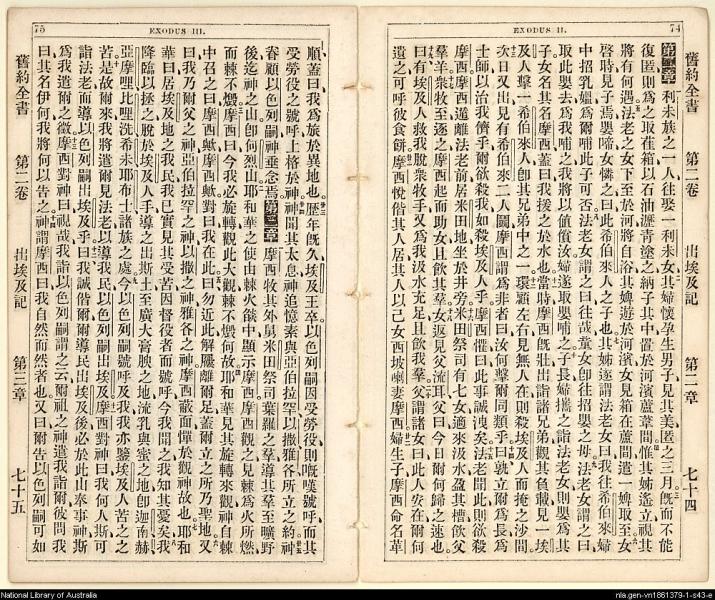 74
EXODUS II.
舊約全書 第二卷 出埃及記 第二章 七十四
第二章 利未族之一人往娶一利未女其婦懷孕生男子見其美匿之三月旣而不能
復匿則爲之取萑箱以石油瀝青塗之納子其中置於河濱蘆葦間惟其姊遙立視其
將有何遇法老之女下至於河將自浴其婢遊於河濱女見箱在蘆間遣一婢取至女
啓時見子焉嬰啼女憐之曰此希伯來人之子也其姊遂謂法老女曰我往希伯來婦
中招乳嫗爲爾哺此子可否法老女謂之曰往哉童女卽往招嬰之母法老女謂之曰
取此嬰去爲我哺之我將以値償汝婦遂取嬰哺之子長婦攜之詣法老女則嬰爲其
子女名其名摩西蓋曰我援之於水也當時摩西旣壯出詣諸兄弟觀其負載見一埃
及人擊一希伯來人卽其兄弟中之一環顧左右見無人在則殺埃及人而掩之沙間
次日又出見有希伯來二人鬭摩西謂爲非者曰汝何擊爾同類乎曰孰立爾爲長爲
士師以治我儕乎爾欲殺我如殺埃及人乎摩西懼曰此事誠洩矣法老聞此則欲殺
摩西摩西遁離法老前居米田地坐於井旁米田祭司有七女適來汲水盈其槽飲父
羣羊衆牧至逐之摩西起而助女且飲其羣女返見父流耳父曰今日爾何歸之速也
曰有埃及人救我脫衆牧手又爲我汲水充足且飲我羣父謂諸女曰此人安在爾何
遺之可呼彼食餅摩西悅偕其人居其人以己女西坡喇妻摩西婦生子摩西命名革
75
EXODUS III.
順蓋曰我爲旅於異地也歷年旣久埃及王卒以色列嗣因受勞役則嘅嘆號呼而其
受勞役之號呼上格於神神聞其太息神追憶素與亞伯拉罕以撒雅各所立之約神
眷顧以色列嗣神垂念焉第三章 摩西牧其外舅米田祭司葉羅之羣導其羣至曠野
後迄神之山卽何烈山耶和華之使由棘火燄中顯示摩西摩西觀之見棘爲火所燃
而棘不燬摩西曰今我必旋轉觀此大觀棘不燬何故耶和華見其旋轉來觀神自棘
中召之曰摩西歟摩西歟對曰我在此曰勿近此解屨離爾足蓋爾立之所乃聖地又
曰我乃爾父之神亞伯拉罕之神以撒之神雅各之神摩西蔽面憚於觀神故也耶和
華曰居埃及地之我民我已實見其受苦因督役者而號呼今我聞之我知其憂矣我
降臨以拯之脫於埃及人手導之出斯土至廣大膏腴之地流乳與蜜之地卽迦南赫
亞摩哩比哩洗希未耶布士諸族之處今以色列嗣號呼及我我亦鑒埃及人苦之之
苦是故爾來我將遣爾見法老以導我民以色列嗣出埃及摩西對神曰我何人斯可
詣法老而導以色列嗣出埃及乎曰我誠偕爾爾導民出埃及後必於此山奉事神斯
爲我遣爾之徵摩西對神曰視哉我詣以色列嗣謂之云爾祖之神遣我詣爾彼問我
曰其名伊何我將何以告之神謂摩西曰我自然而然者也又曰爾告以色列嗣可如
舊約全書 第二卷 出埃及記 第三章 七十五
National Library of Australia
nla.gen-vn1861379-1-s43-e